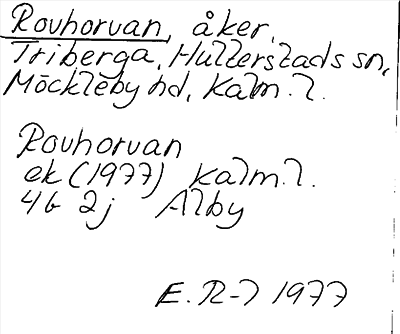 Rovhorvan, åker,
Triberga, Hulterstads sn,
Möckleby hd, Kalm. l.
Rovhorvan
ek (1977) Kalm. l.
4G 2j Alby
E. R-7 1977